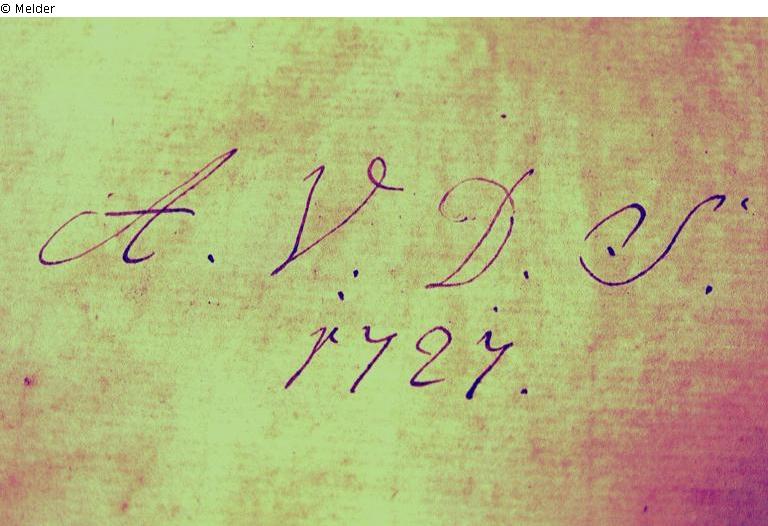 © Melder
A. V. D. S.
1727.